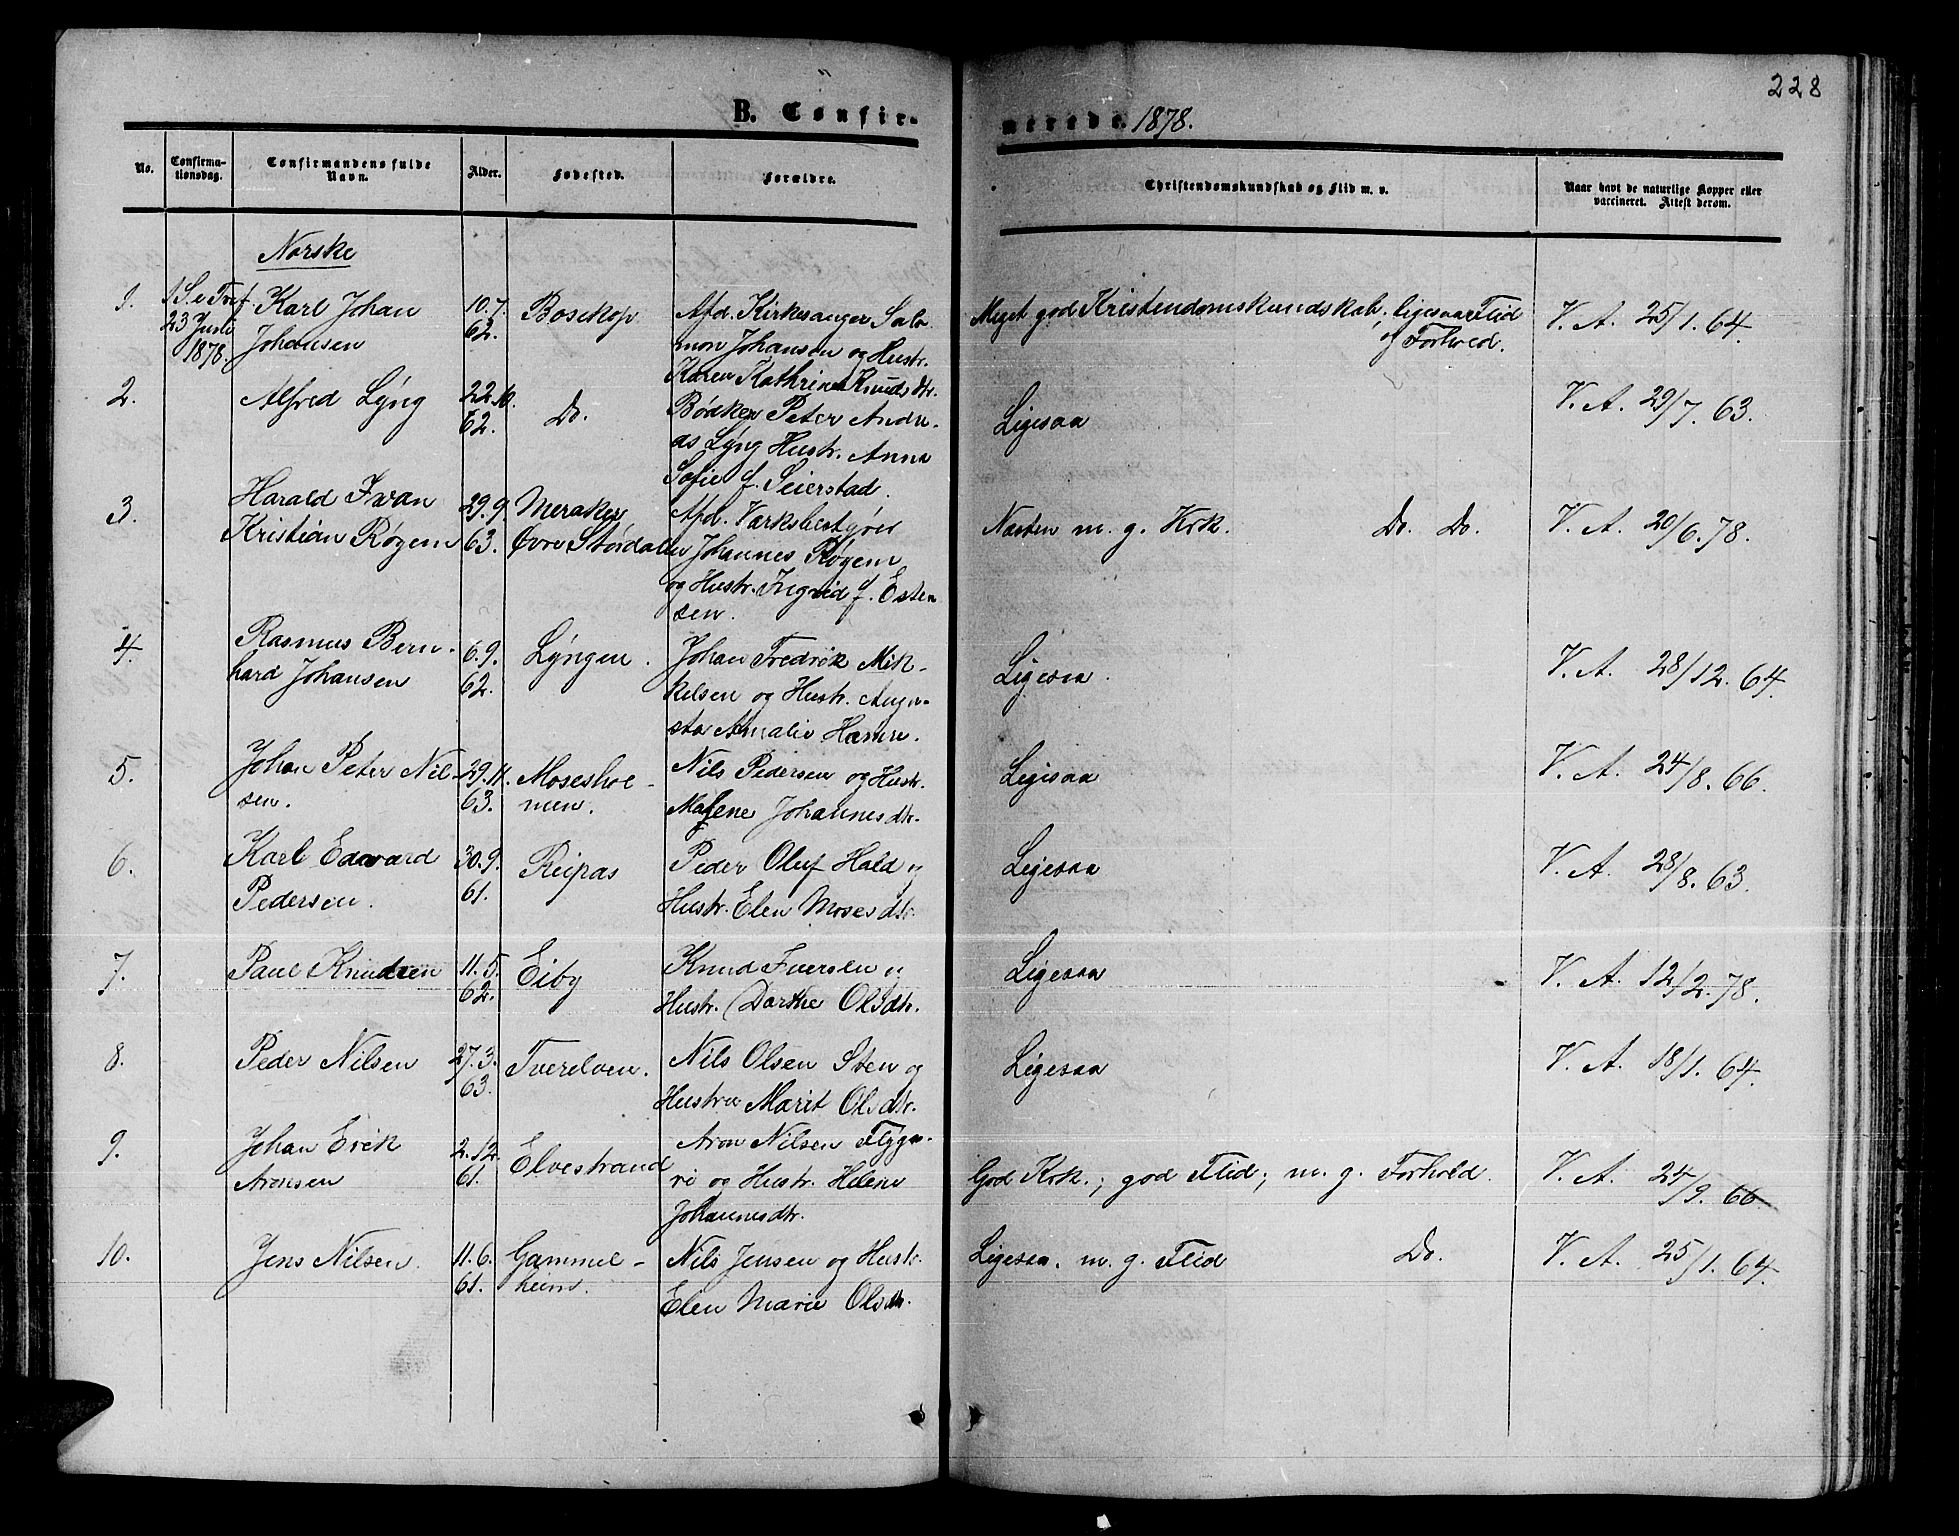 228
B. Confirmerede. 1878.
No.
Confirmationsdag.
Confirmandens fulde Navn.
Alder.
Fødested.
Forældre.
Christendomskundskab og Flid m. v.
Naar havt de naturlige Kopper eller vaccineret. Attest derom.
Norske
1. 1 S. e. Tref. Karl Johan 10.7. Bosekop. Afd. Kirkesanger Salo- Meget god Kristendomskundskab, ligesaa Flid V. A. 25/1. 64.
23 Juni Johansen 62. mon Johansen og Hustr. og Forhold.
1878. Karen Kathrina Knudsdtr.
2. Alfred Lyng 22.10. Do. Bødker Peter Andre- Ligesaa V. A. 29/7. 63.
62. as Lyng Hustr. Anna
Sofie f. Seierstad.
3. Harald Ivan 29.9. Meraker Afd. Værksbestyrer Næsten m. g. Krk. Do. Do. V. A. 20/6. 78.
Kristian Røgem 63. Øvre Størdalen Johannes Røgem
og Hustr. Ingrid f. Esten
sen.
4. Rasmus Bern- 6.9. Lyngen. Johan Fredrik Mik- Ligesaa. V. A. 28/12. 64.
hard Johansen 62. kelsen og Hustr. Augu-
sta Amalie Hamre.
5. Johan Peter Nil- 29.11. Moseshol- Nils Pedersen og Hustr. Ligesaa V. A. 24/8. 66.
sen. 63. men. Johannesdtr.
6. Karl Edvard 30.9. Reipas Peder Oluf Hald og Ligesaa V. A. 28/8. 63.
Pedersen. 61. Hustr. Elen Mosesdtr.
7. Paul Knudsen 11.5. Eiby Knud Iversen og Ligesaa V. A. 12/2. 78.
62. Hustr. Dorthe Olsdtr.
8. Peder Nilsen 27.3. Tverelven. Nils Olsen Sten og Ligesaa V. A. 18/1. 64.
63. Hustru Marit Olsdtr.
9. Johan Erik 2.12. Elvestrand Aron Nilsen Flyga- God Krk.; god Flid; m. g. Forhold. V. A. 24/9. 66.
Aronsen 61. re og Hustr. Helene
Johannesdtr.
10. Jens Nilsen. 11.6. Gammel- Nils Jensen og Hustr. Ligesaa. m. g. Flid Do. V. A. 25/1. 64.
61. heim. Elen Marie Olsdtr.